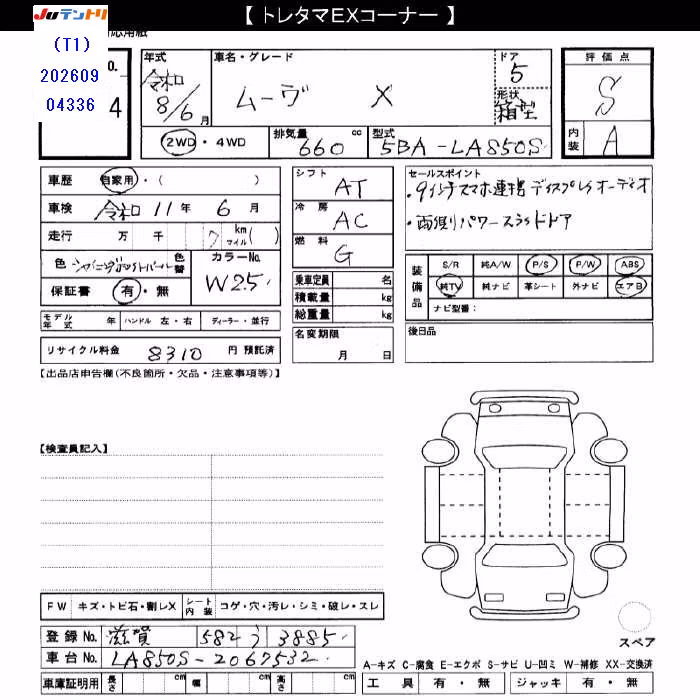 【 トレタマEXコーナー 】
JUテントリ
(T1)
202609
04336
応用紙
o.
4
年式
令和
8/6月
車名・グレード
ムーヴ X
ドア
5
形状
箱型
評価点
S
内装
A
2WD・4WD
排気量 660 cc
型式 5BA-LA850S
車歴 自家用・( )
車検 令和 11年 6月
走行 万 千 7 km マイル( )
色 シャイニングホワイトパール 色替
カラーNo.
W25
保証書 有・無
シフト
AT
冷房
AC
燃料
G
乗車定員 名
積載量 kg
総重量 kg
セールスポイント
・9インチスマホ連携ディスプレイオーディオ
・両側パワースライドドア
装備品
S/R 純A/W P/S P/W ABS
純TV 純ナビ 革シート 外ナビ エアB
ナビ型番:
モデル年式 年 ハンドル 左・右 ディーラー・並行
名変期限
月 日
後日品
リサイクル料金 8310 円 預託済
【出品店申告欄(不良箇所・欠品・注意事項等)】
【検査員記入】
FW キズ・トビ石・割レX シート内装 コゲ・穴・汚レ・シミ・破レ・スレ
登録No. 滋賀 582 う 3885
車台No. LA850S-2067532
車庫証明用 長さ cm 幅 cm 高さ cm
スペア
A-キズ C-腐食 E-エクボ S-サビ U-凹ミ W-補修 XX-交換済
工具 有・無 ジャッキ 有・無